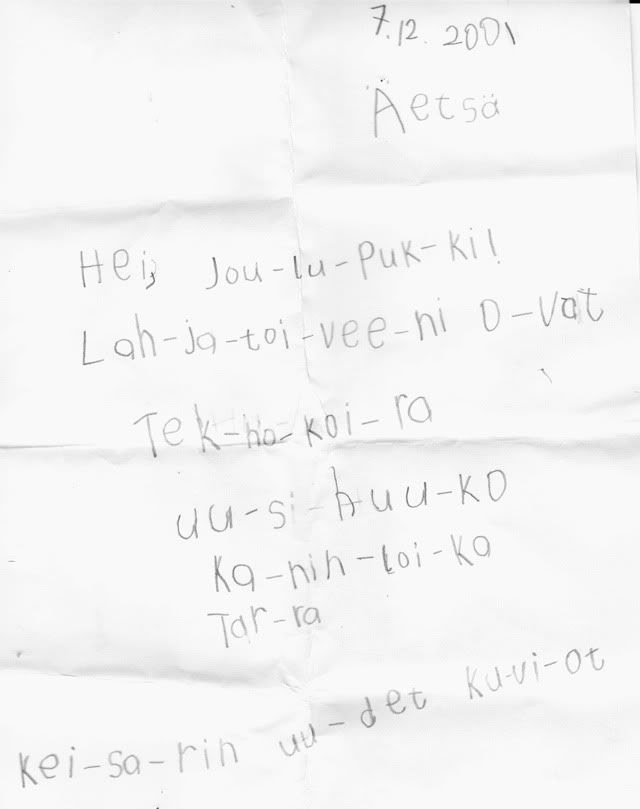 7.12.2001
Äetsä
Hei, Jou-lu-puk-ki!
Lah-ja-toi-vee-ni o-vat
Tek-no-koi-ra
uu-si-huu-ko
Ka-nin-loi-ka
Tar-ra
kei-sa-rin uu-det ku-vi-ot